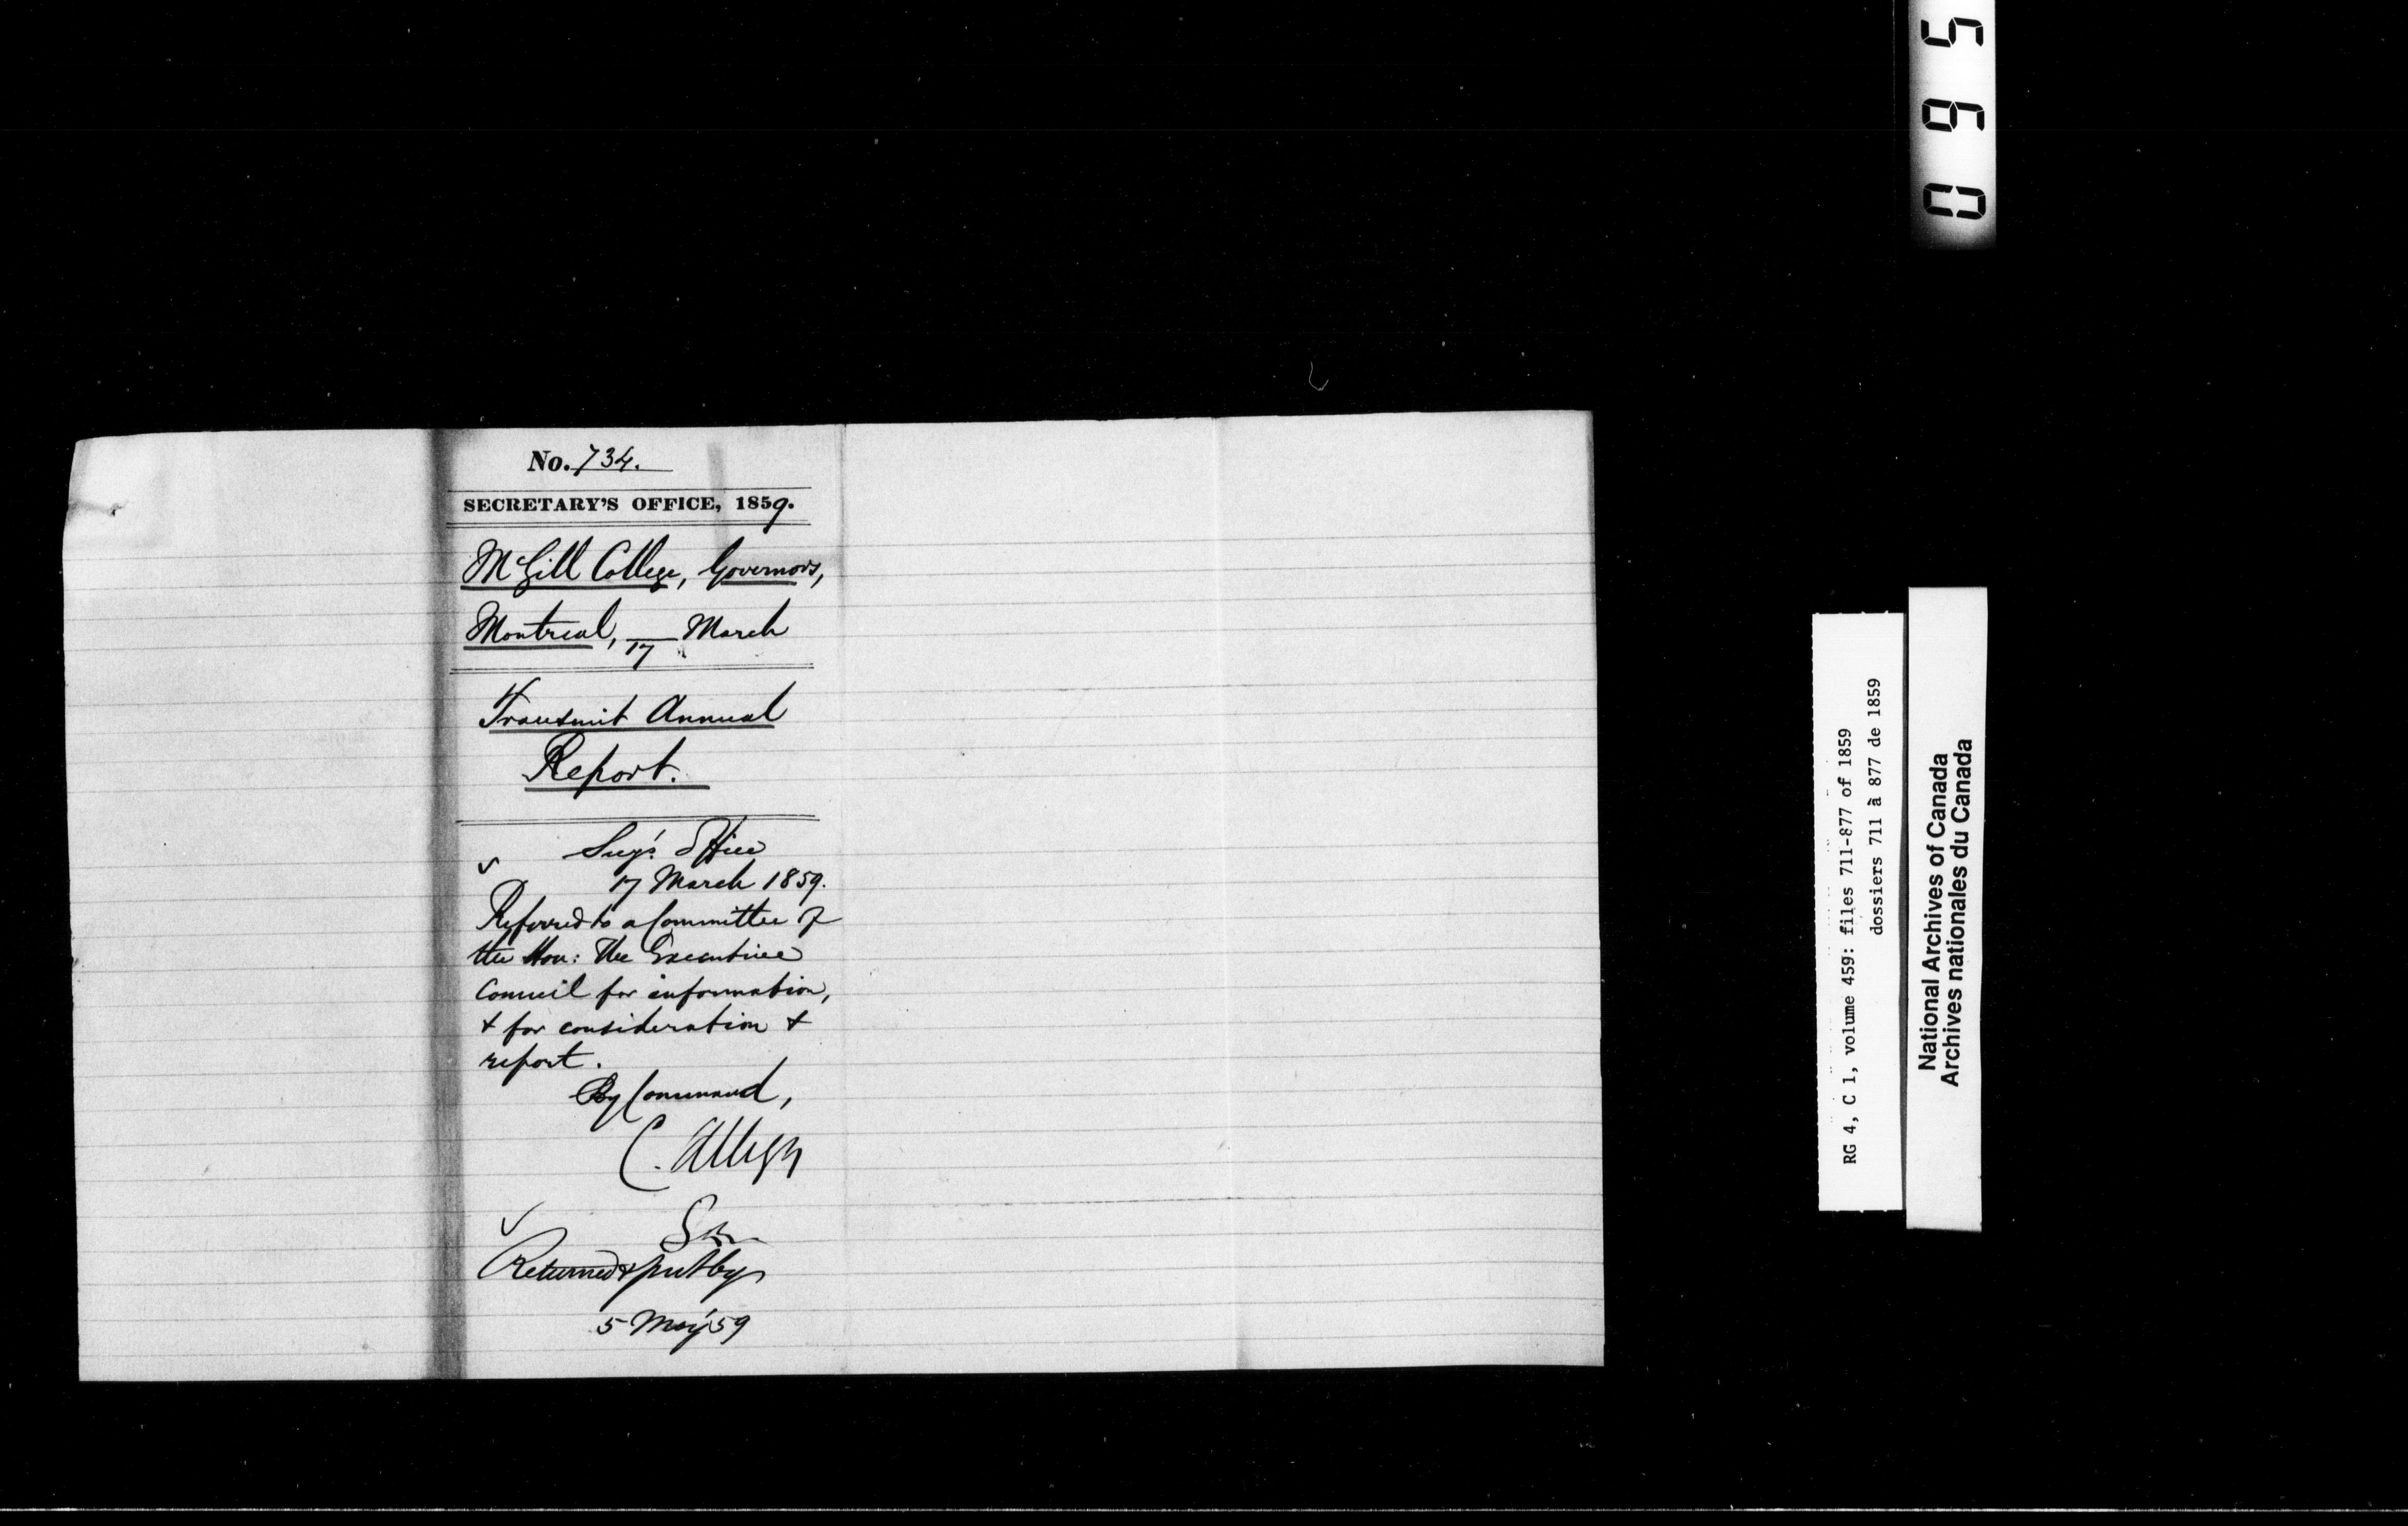 No. 734.
SECRETARY'S OFFICE, 1859.
McGill College, Governors,
Montreal, 17 March
Transmit Annual
Report.
Secy's Office
17 March 1859.
Referred to a Committee of
the Hon: The Executive
Council for information,
& for consideration &
report.
By Command,
C. Alleyn
Returned & put by
5 May 59
5 6 0
RG 4, C 1, volume 459: files 711-877 of 1859
dossiers 711 à 877 de 1859
National Archives of Canada
Archives nationales du Canada